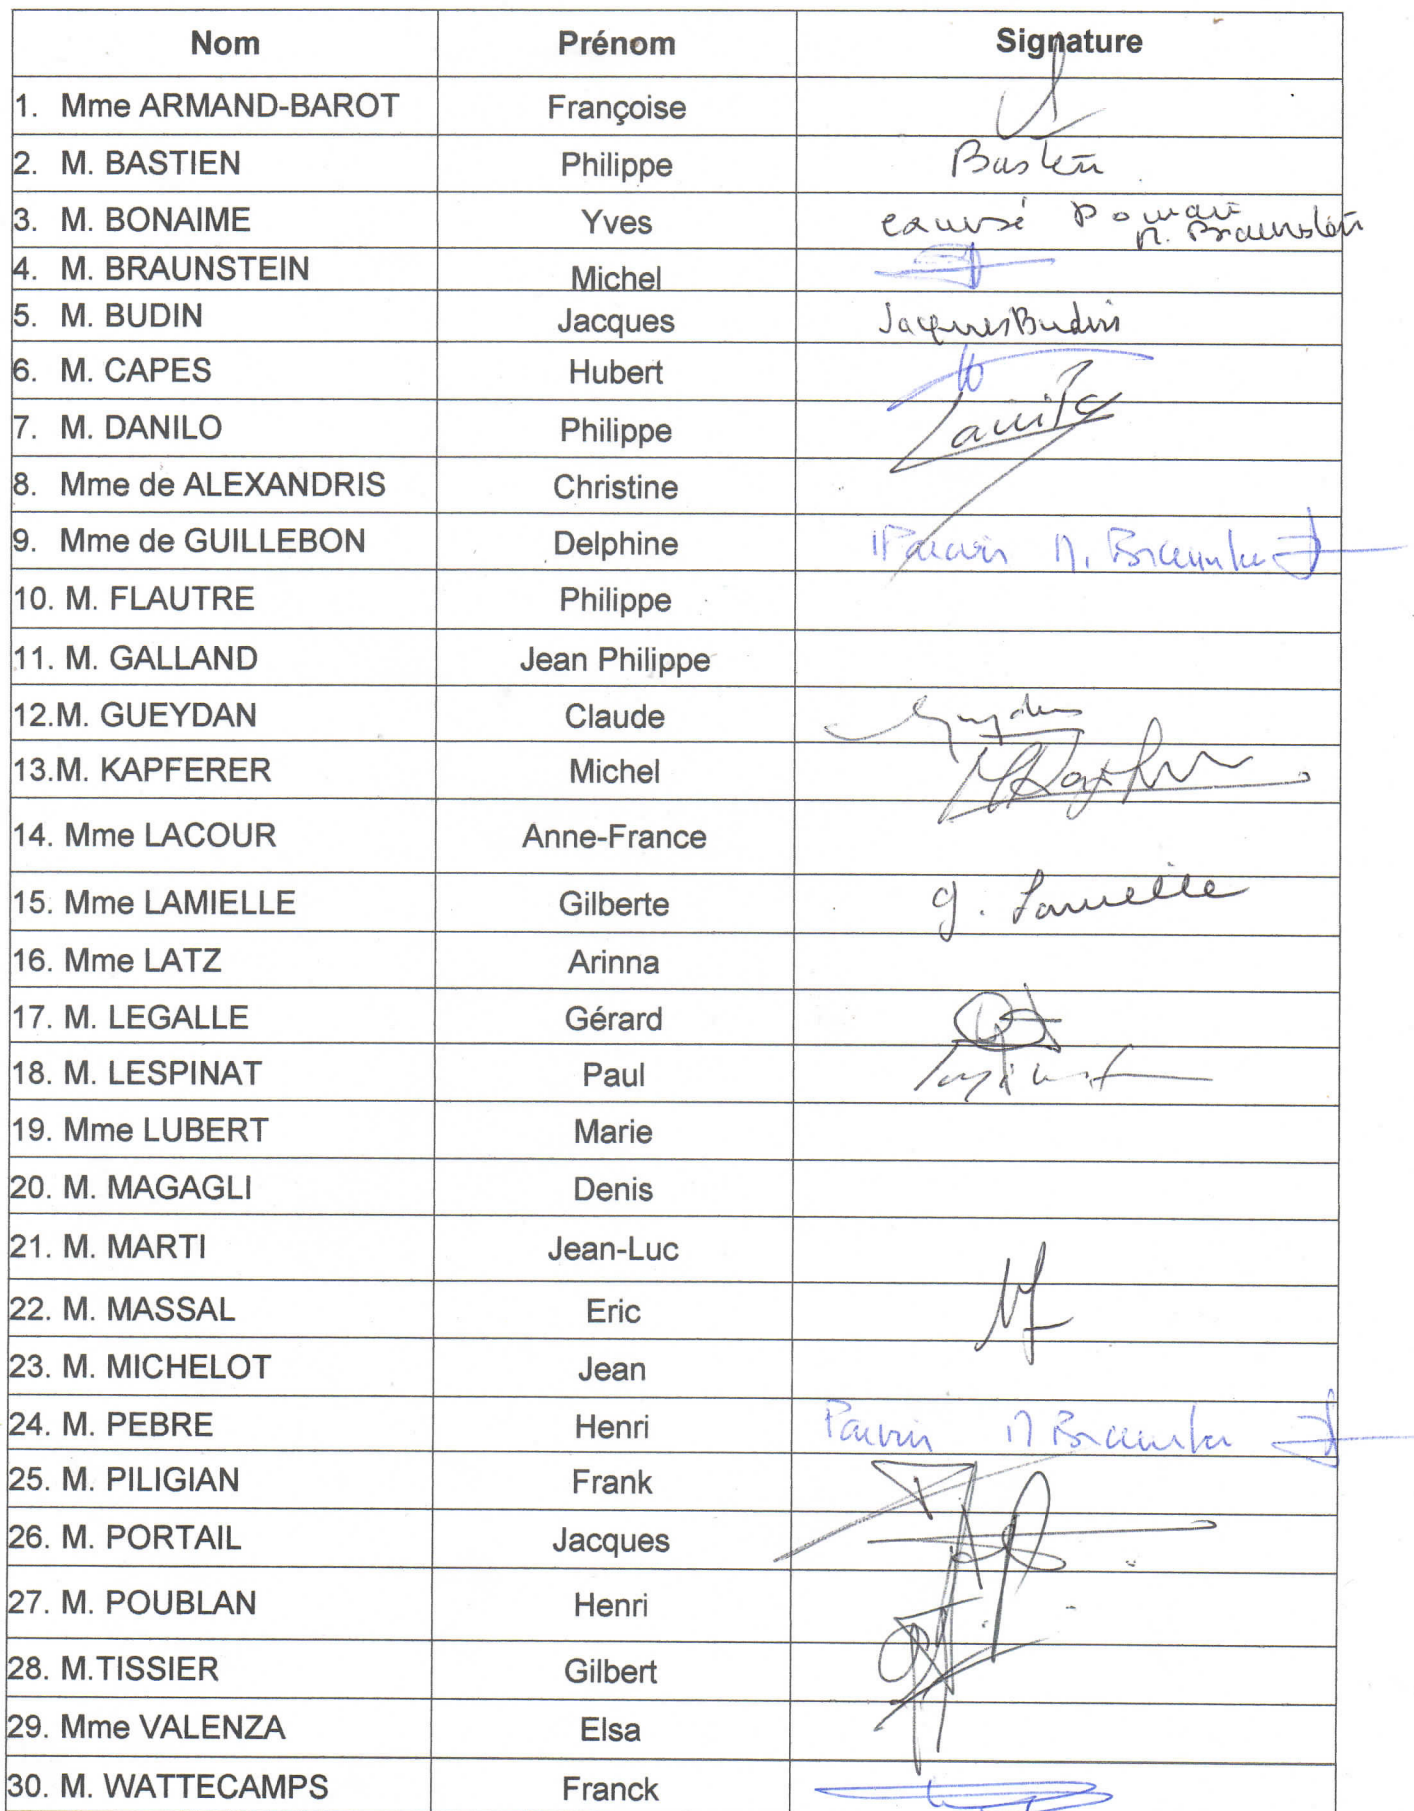 Nom Prénom Signature
1. Mme ARMAND-BAROT Françoise
2. M. BASTIEN Philippe Bastien
3. M. BONAIME Yves excusé Pouvoir
M. Braunstein
4. M. BRAUNSTEIN Michel
5. M. BUDIN Jacques Jacques Budin
6. M. CAPES Hubert
7. M. DANILO Philippe
8. Mme de ALEXANDRIS Christine
9. Mme de GUILLEBON Delphine Pouvoir M.
10. M. FLAUTRE Philippe
11. M. GALLAND Jean Philippe
12.M. GUEYDAN Claude
13.M. KAPFERER Michel
14. Mme LACOUR Anne-France
15. Mme LAMIELLE Gilberte g. Lamielle
16. Mme LATZ Arinna
17. M. LEGALLE Gérard
18. M. LESPINAT Paul
19. Mme LUBERT Marie
20. M. MAGAGLI Denis
21. M. MARTI Jean-Luc
22. M. MASSAL Eric
23. M. MICHELOT Jean
24. M. PEBRE Henri Pouvoir M
25. M. PILIGIAN Frank
26. M. PORTAIL Jacques
27. M. POUBLAN Henri
28. M.TISSIER Gilbert
29. Mme VALENZA Elsa
30. M. WATTECAMPS Franck